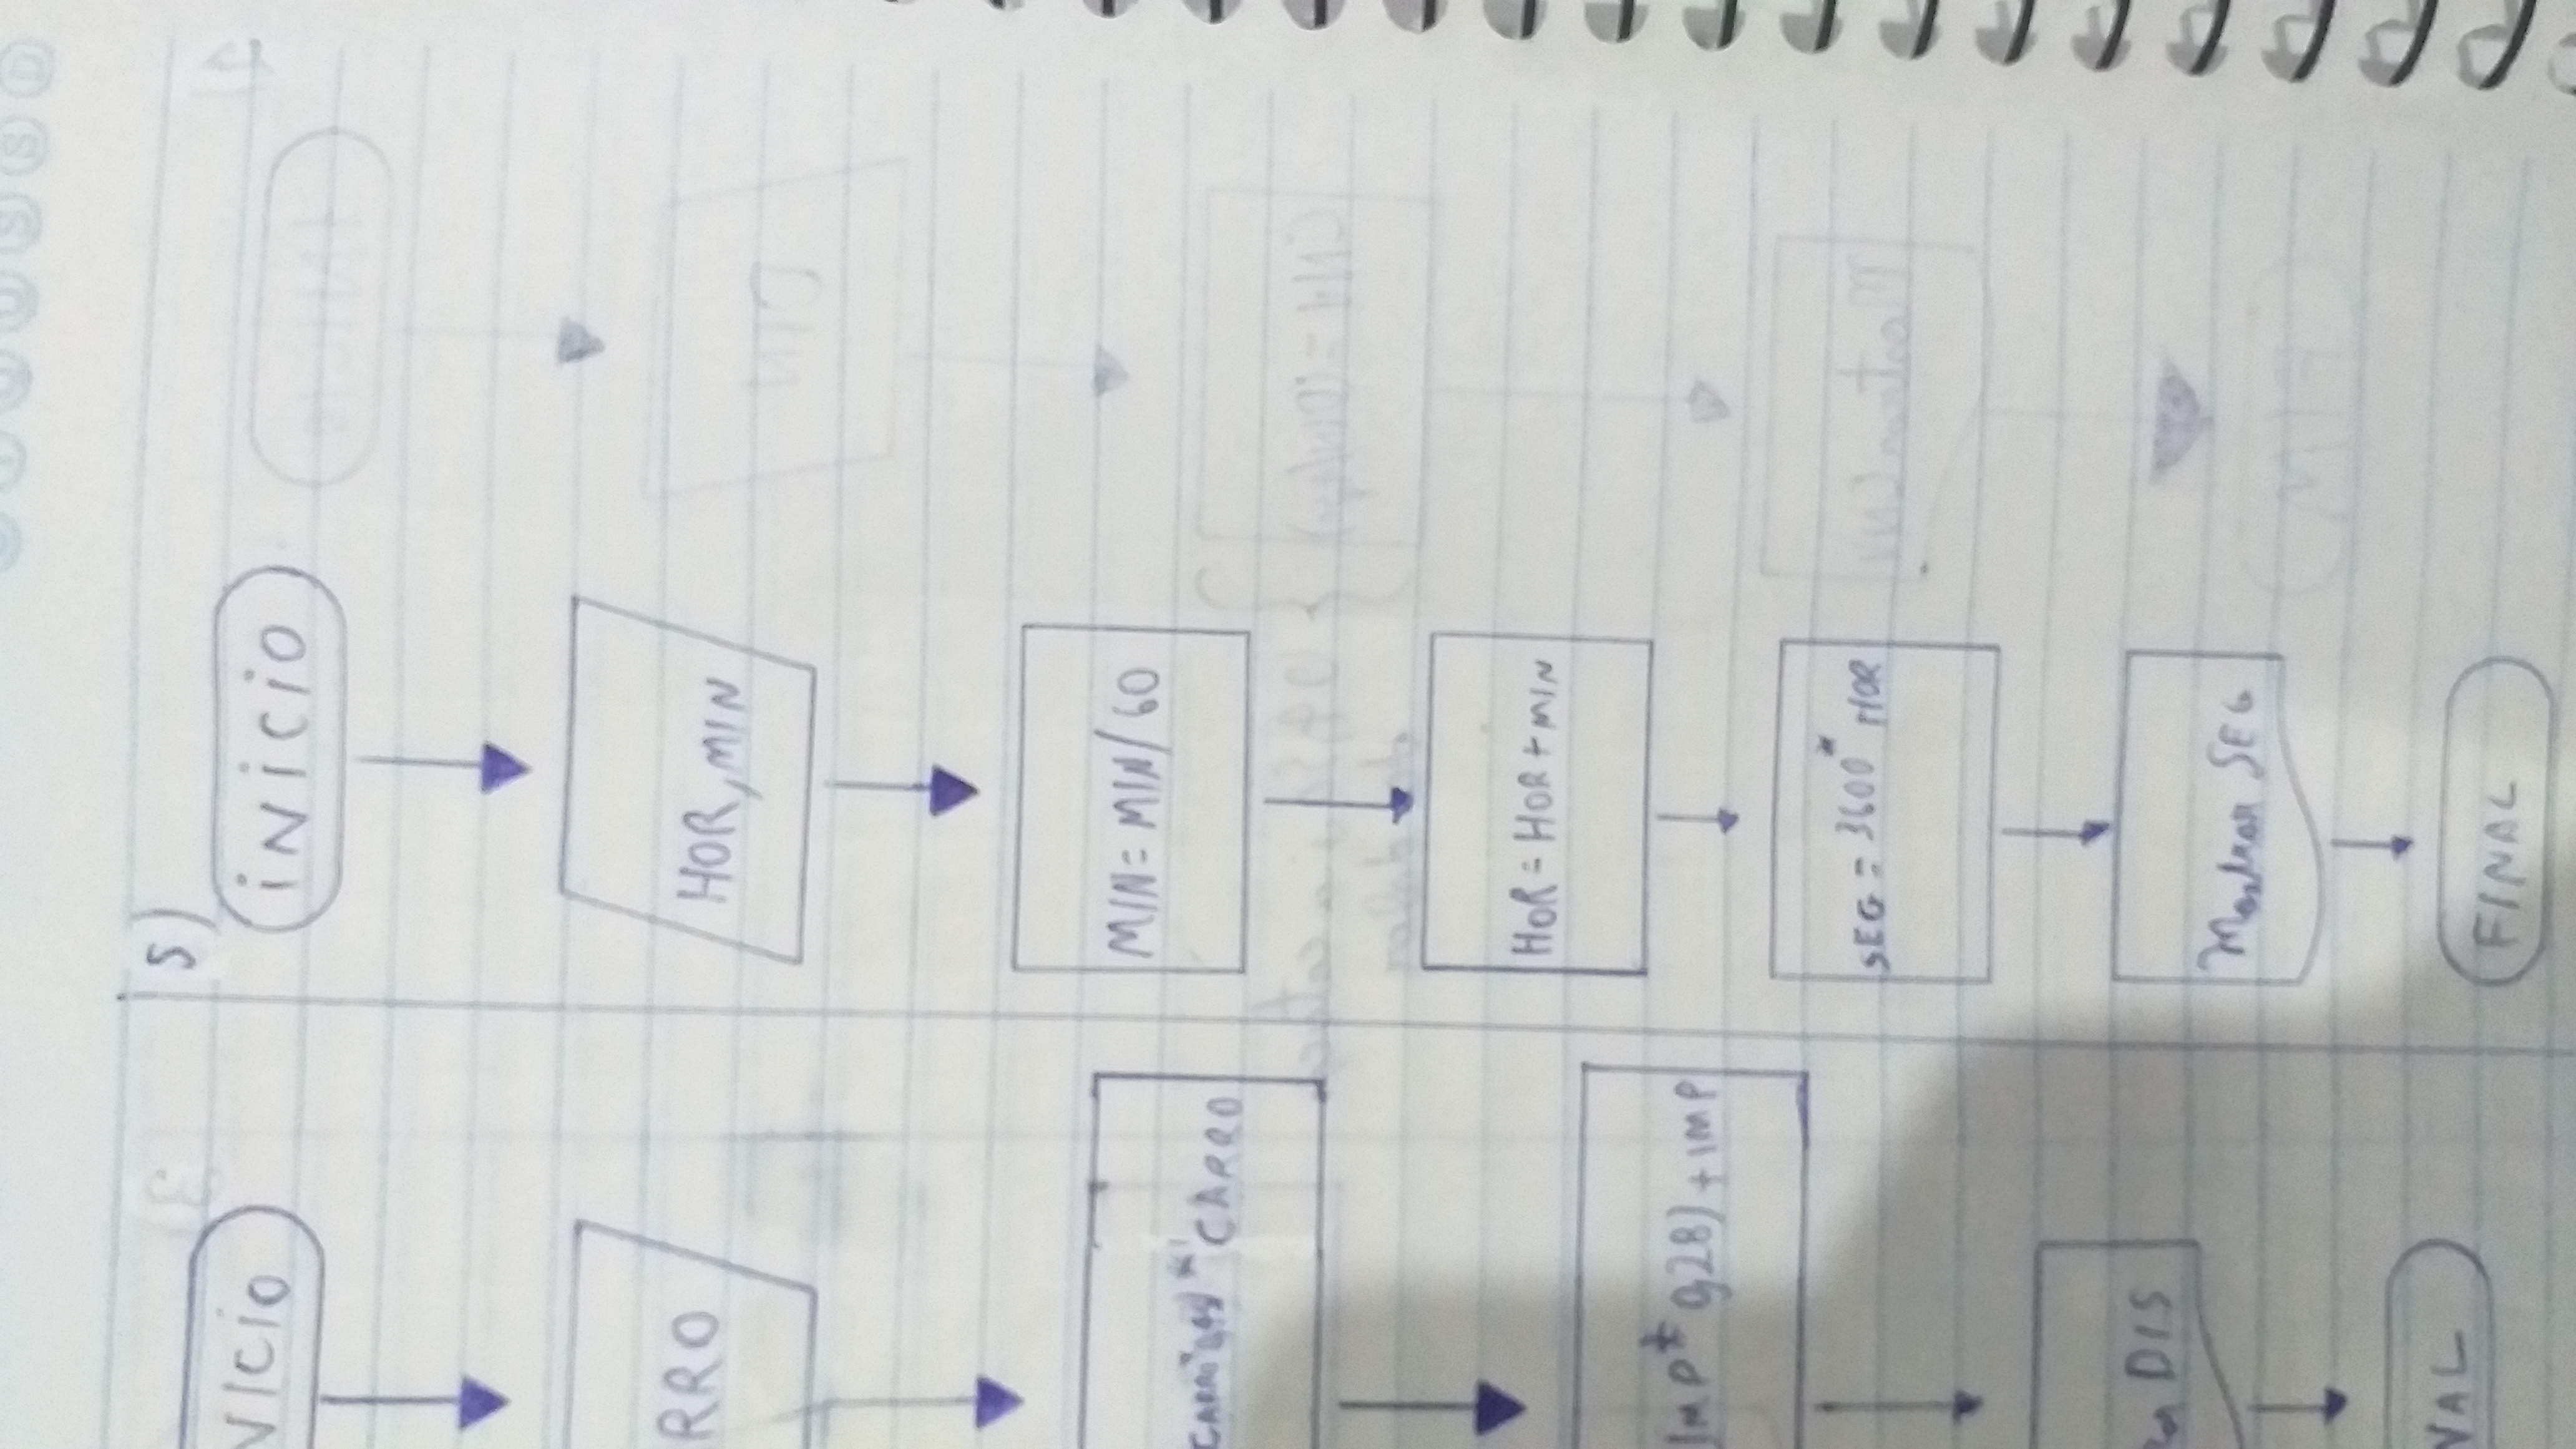 NICIO
RRO
CARRO
IMP* 0,28) + IMP
DIS
NAL
5)
iNiCiO
HOR, MIN
MIN = MIN/60
HOR = HOR + MIN
SEG = 3600* HOR
Mostrar SEG
FINAL